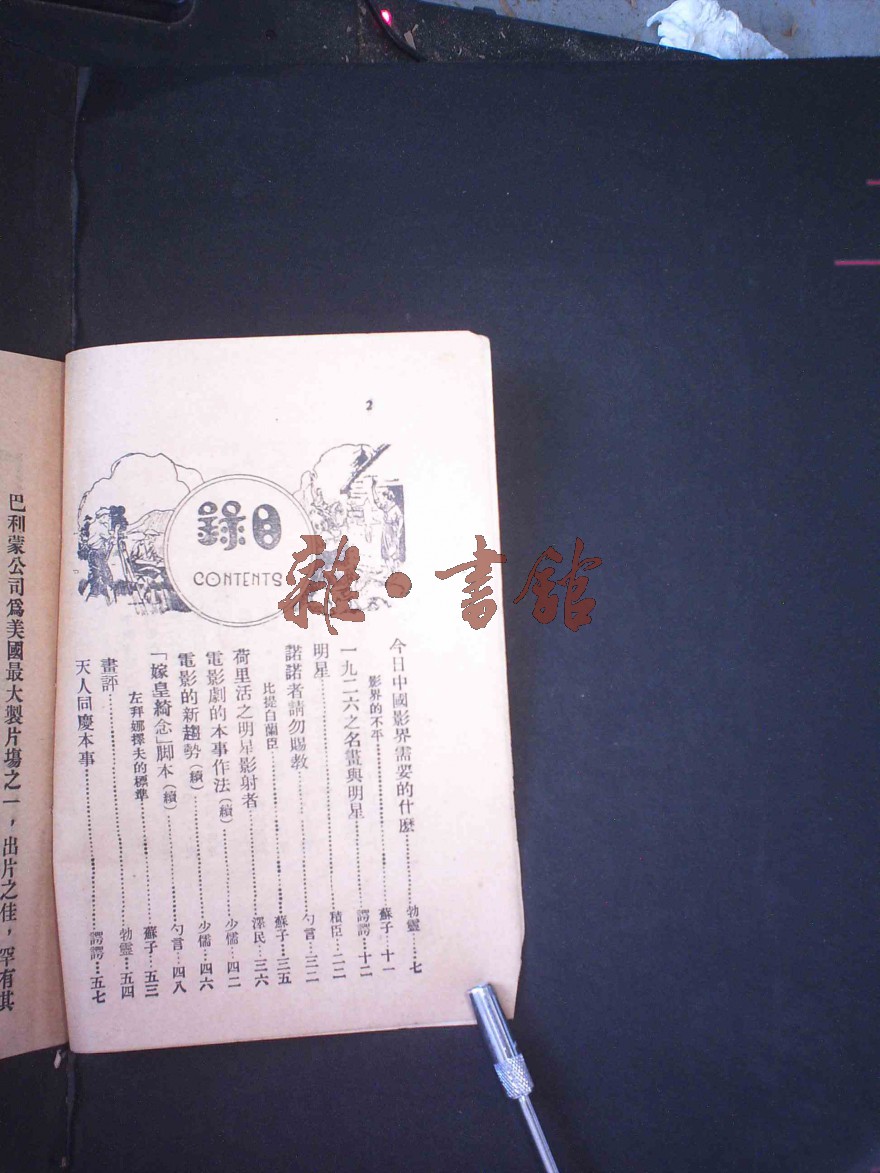 2
錄目
CONTENTS
雜·書館
今日中國影界需要的什麼……勃靈……七
影界的不平……蘇子…十一
一九二六之名畫與明星……諤諤…十二
明星……積臣…二二
諾諾者請勿賜教……勺言…三二
比提白蘭臣……蘇子…三五
荷里活之明星影射者……澤民…三六
電影劇的本事作法(續)……少儒…四二
電影的新趨勢(續)……少儒…四六
「嫁皇綺念」脚本(續)……勺言…四八
左拜娜擇夫的標準……蘇子…五三
畫評……勃靈…五四
天人同慶本事……諤諤…五七
巴利蒙公司爲美國最大製片塲之一，出片之佳，罕有其